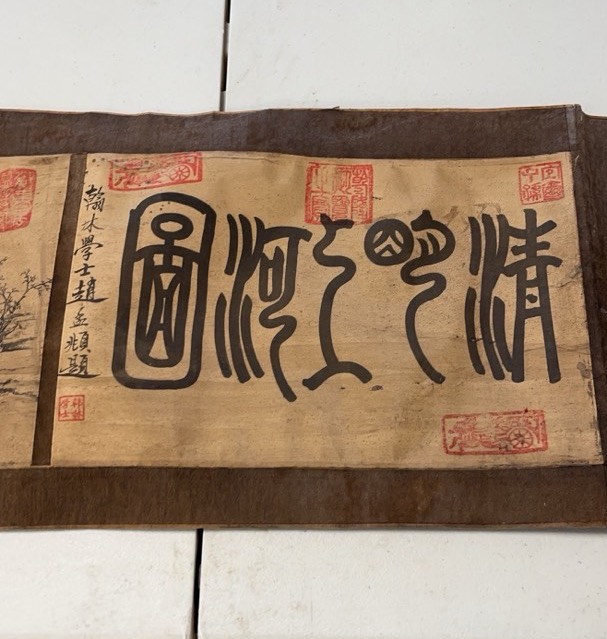 清明上河圖
翰林學士趙孟頫題